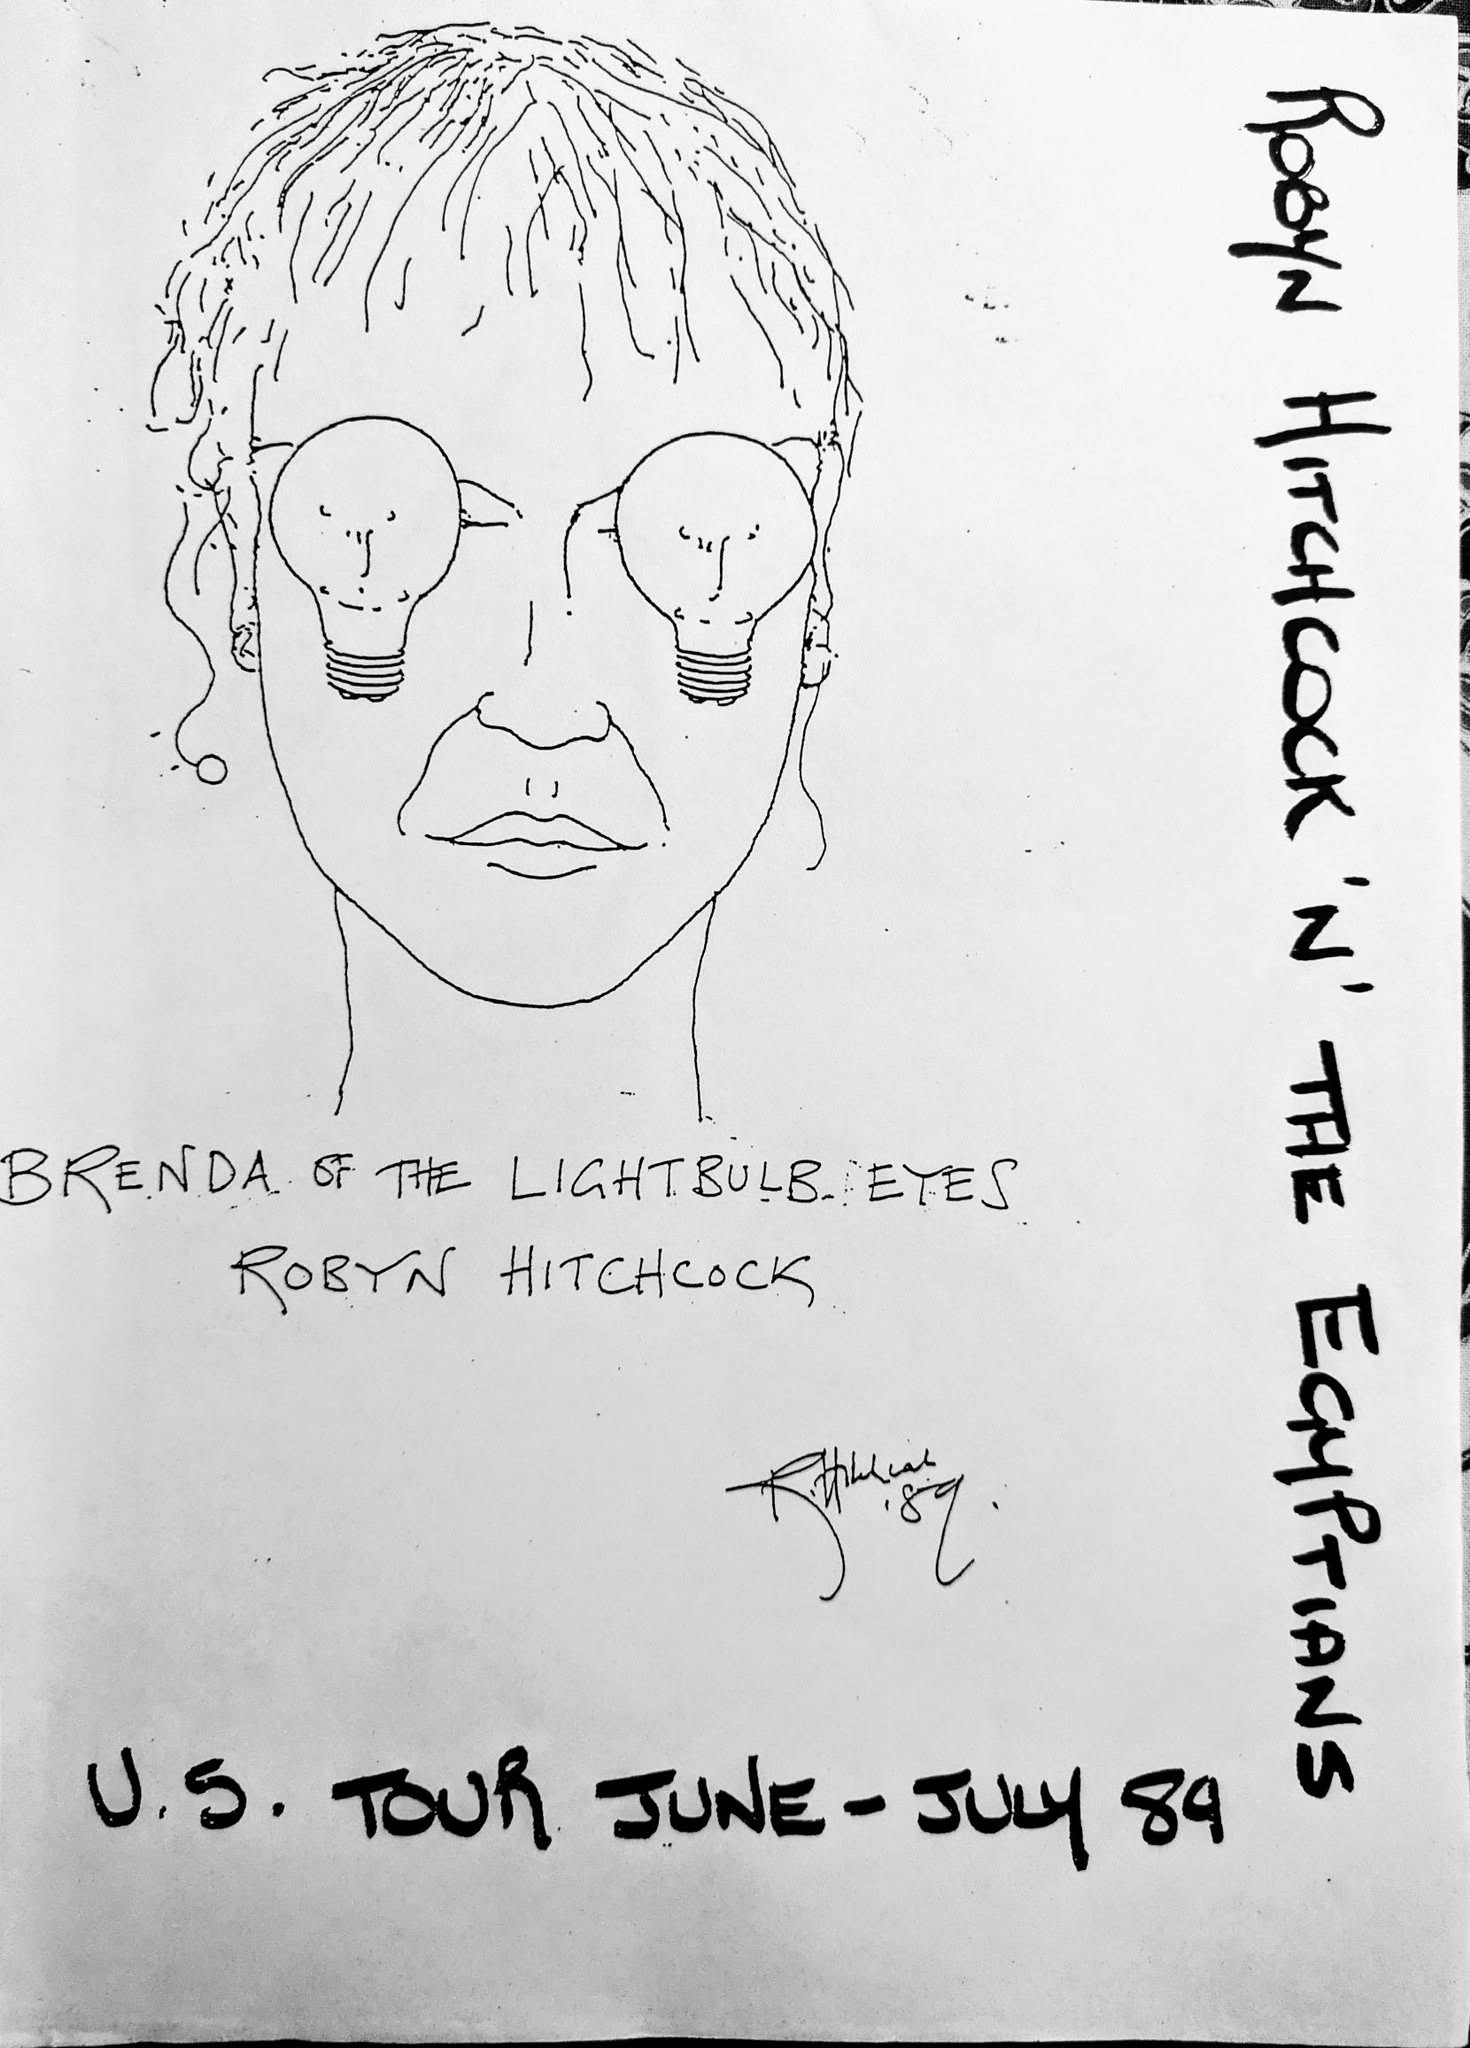 ROBYN HITCHCOCK 'N' THE EGYPTIANS
BRENDA OF THE LIGHTBULB EYES
ROBYN HITCHCOCK
R. Hitchcock
'89.
U.S. TOUR JUNE - JULY 89